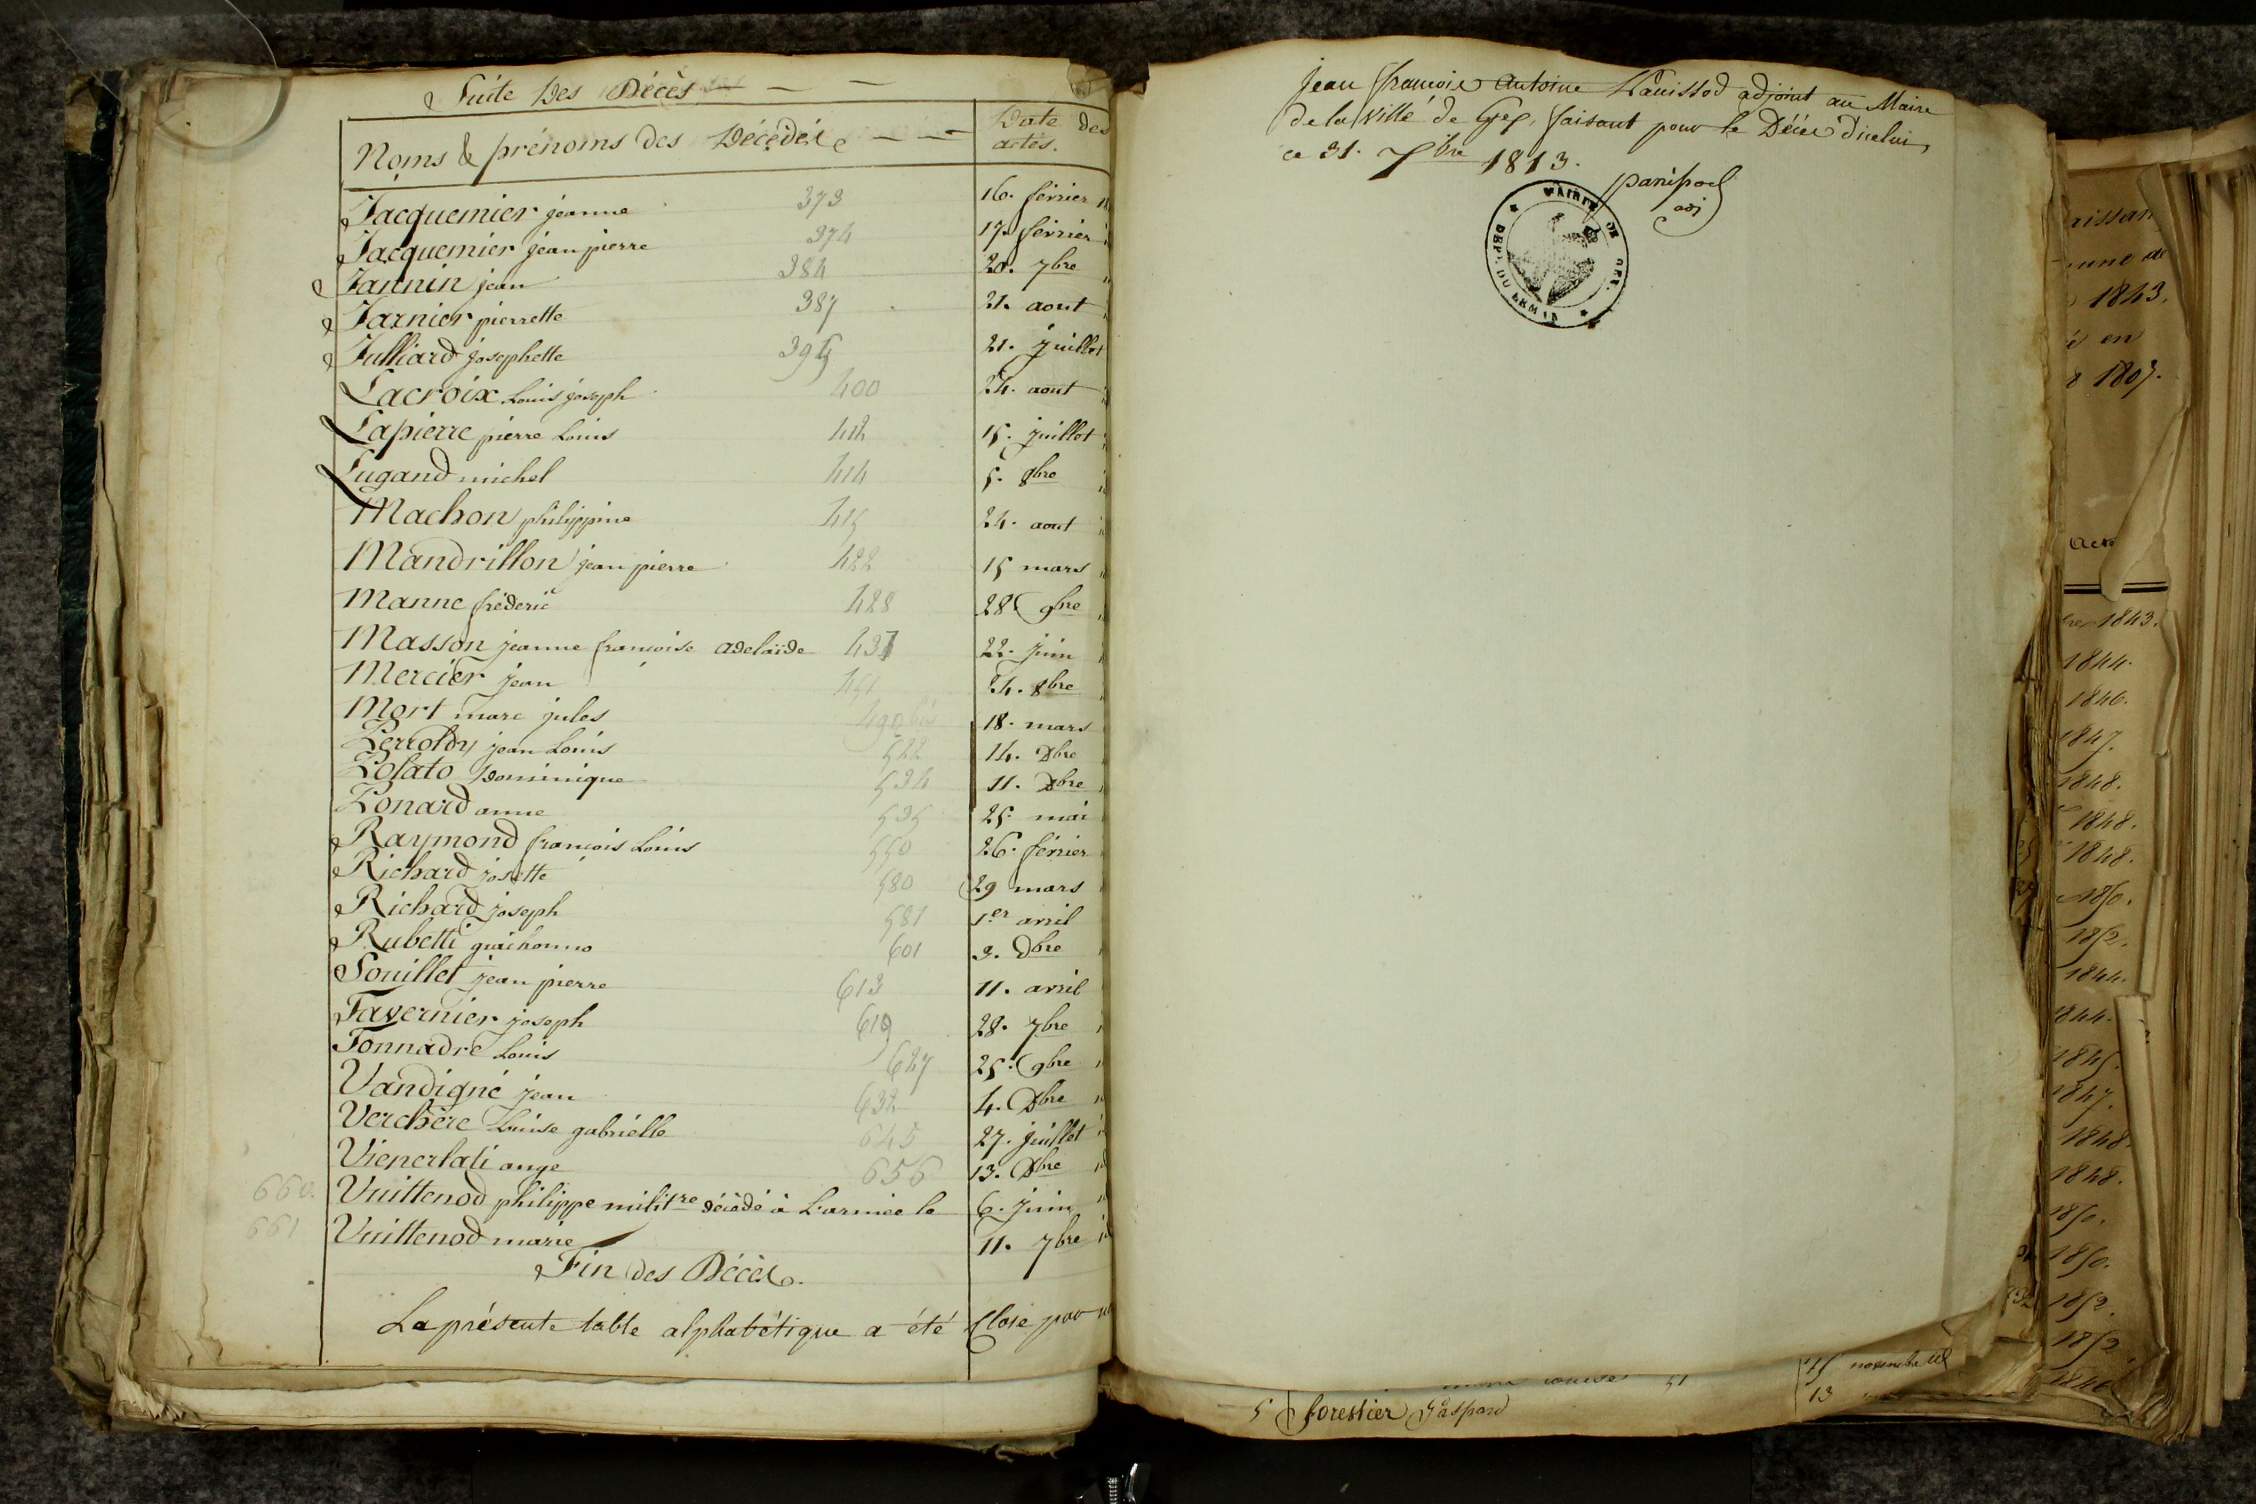 Suite Des Décès
Noms & prénoms des Décédés
Date des actes.
Jacquemier jeanne 373 16. février
Jacquemier jean pierre 374 17. février
Jannin jean 384 20. 7bre
Jarnier pierrette 387 21. aout
Julliard josephette 395 21. juillet
Lacroix Louis joseph 400 24. aout
Lapierre pierre Louis 412 15. juillet
Lugand michel 414 5. 8bre
Machon philippine 415 24. aout
Mandrillon jean pierre 422 15 mars
Manne fréderic 428 28 9bre
Masson jeanne françoise adelaïde 437 22. juin
Mercier jean 451 24. 8bre
Mort marc jules 18. mars
jean Louis 522 14. Dbre
Dominique 534 11. Dbre
anne 535 25. mai
Raymond françois Louis 550 26. février
Richard josette 580 29 mars
Richard joseph 581 1er avril
Rubetti 601 3. Dbre
Souillet jean pierre 613 11. avril
Tavernier joseph 619 28. 7bre
Tonnadre Louis 627 25. 9bre
Vandigné jean 632 4. Dbre
Verchère Louise gabrielle 645 27. juillet
ange 656 13. Dbre
660. Vuittenod philippe militre décédé à L'armée le 6. juin
661 Vuittenod marie 11. 7bre
Fin des Décès.
La présente table alphabétique a été Close par
Jean françois antoine adjoint au Maire
de la Ville de Gex, faisant pour le Décès d'icelui,
ce 31. 7bre 1813.
adj
MAIRIE DE GEX.
DEPt. DU LEMAN
5 forestier Gaspard
13
1843.
en
1807.
1843.
1844.
1846.
1847.
1848.
1848.
1848.
1850.
1852.
1844.
1844.
1845.
1847.
1848.
1848.
1850.
1850.
1852.
1852